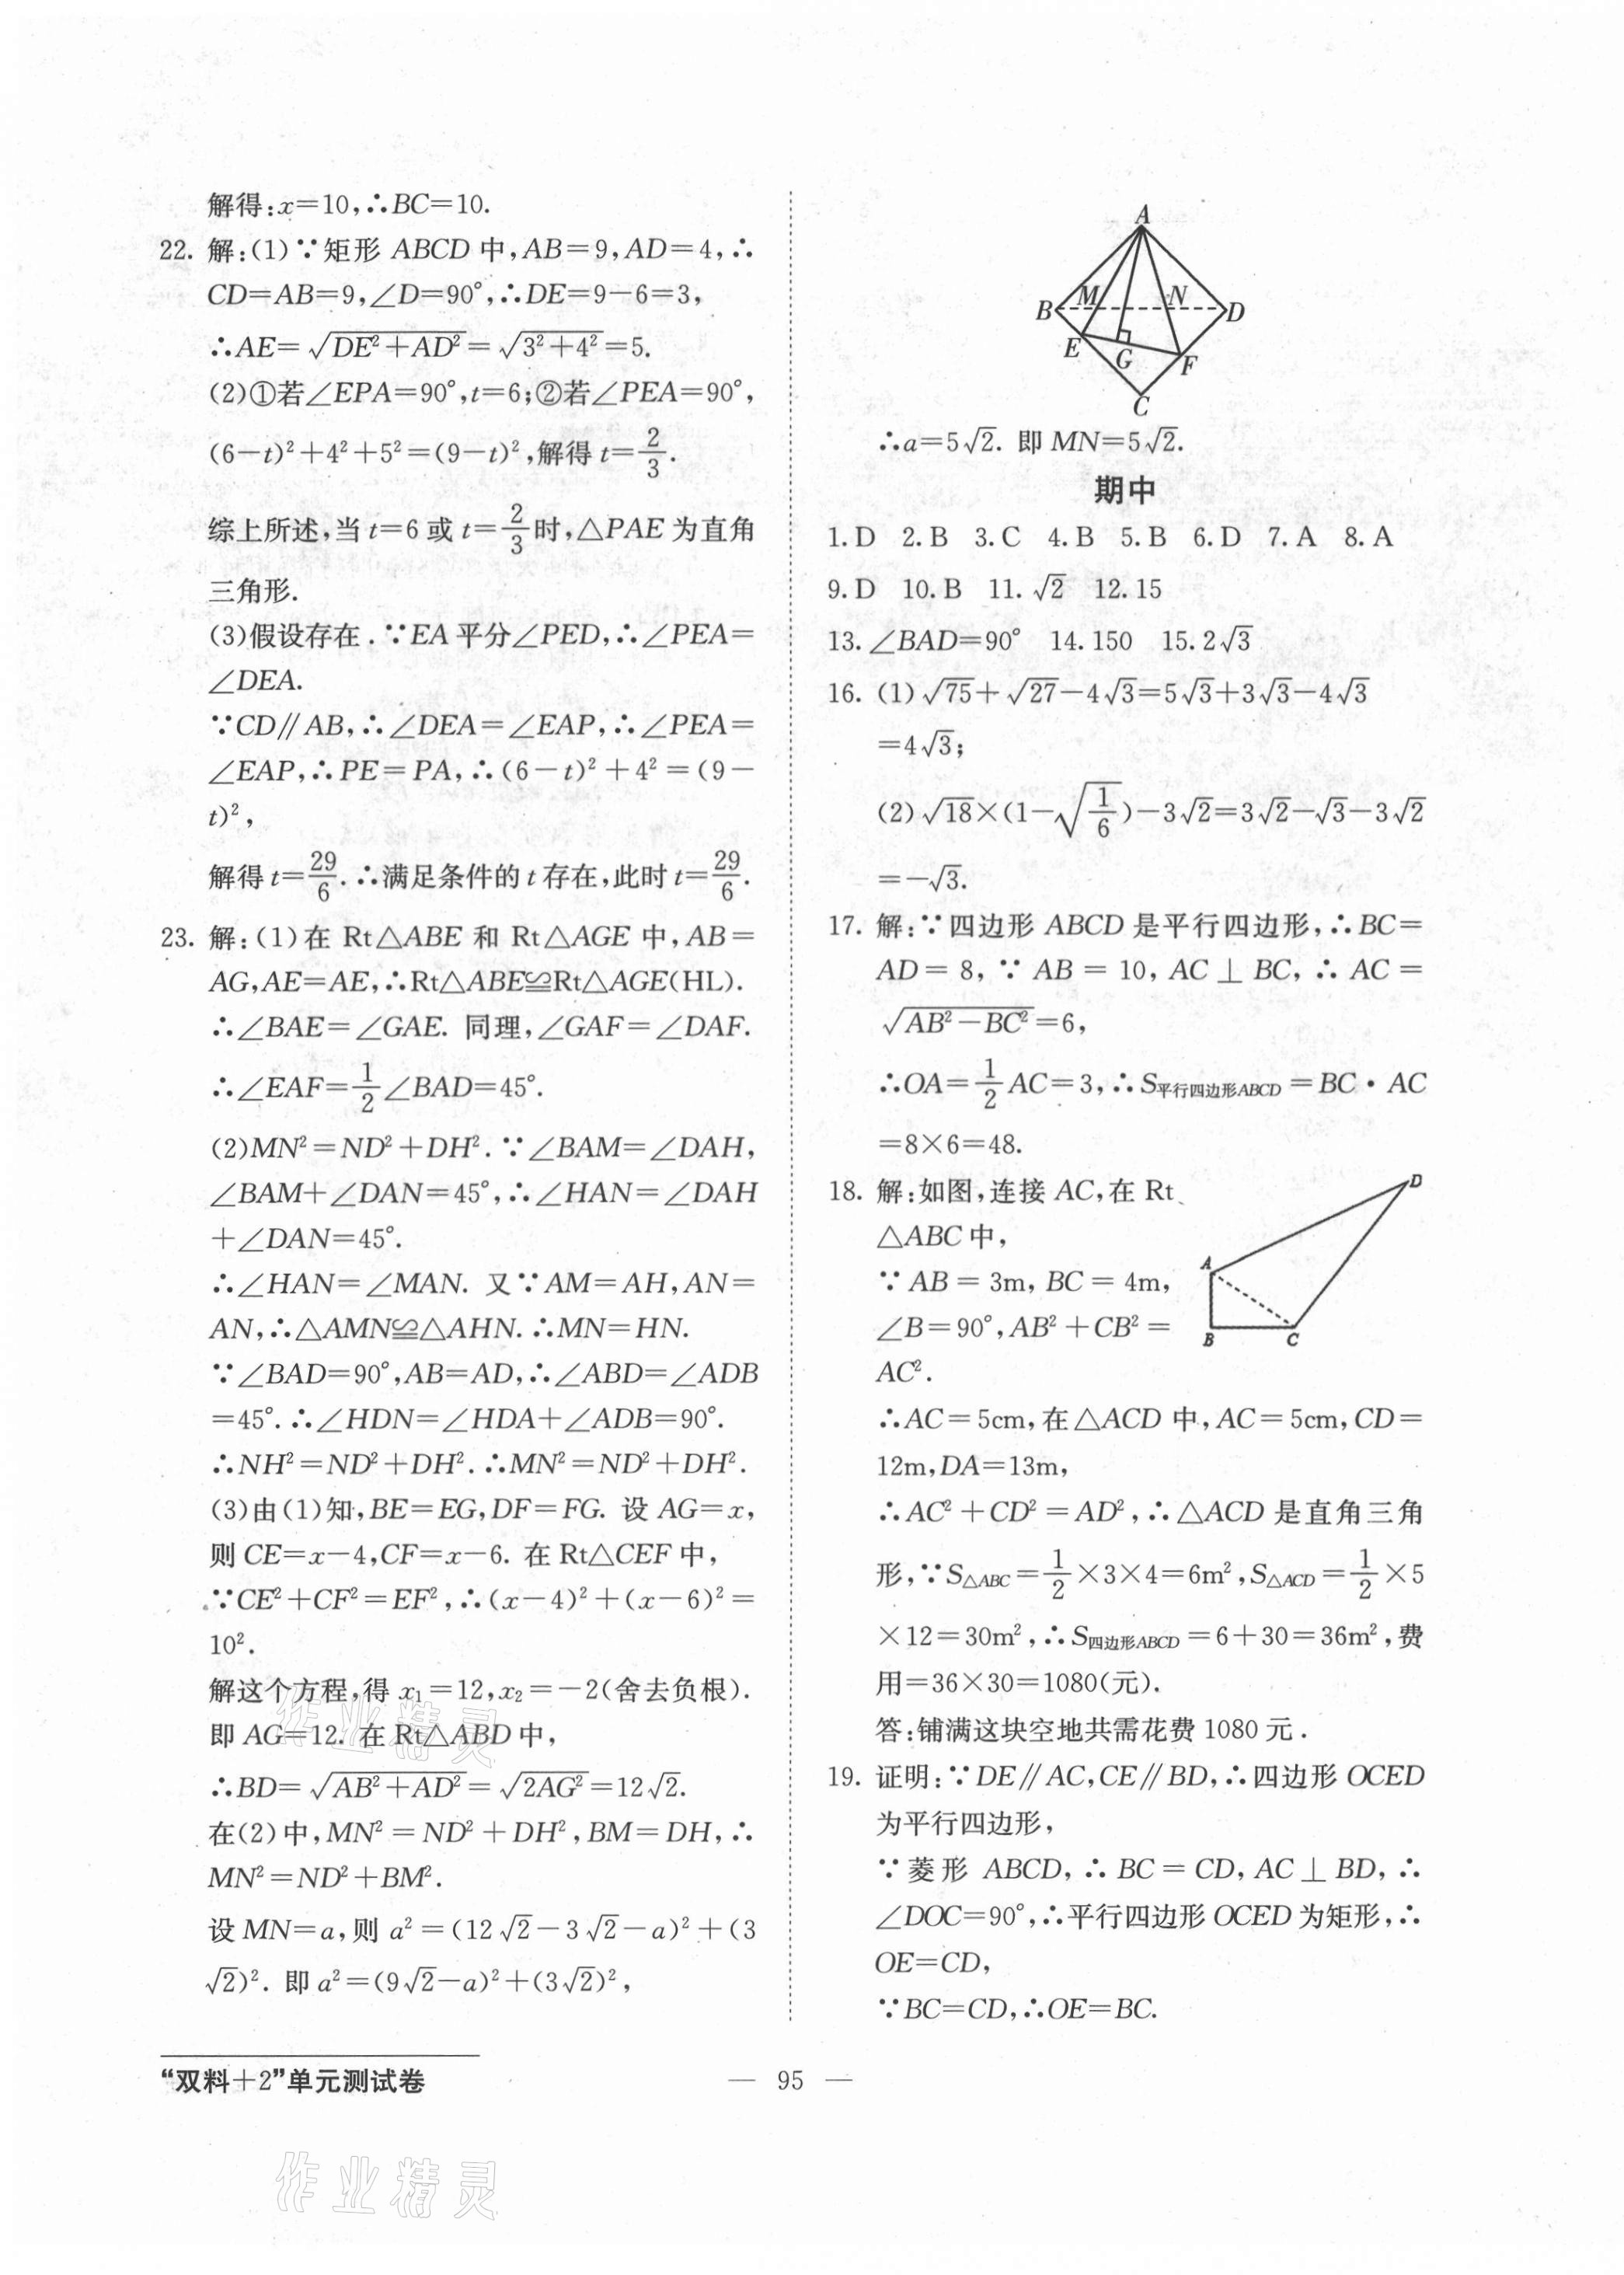 解得:x=10,∴BC=10.
22. 解:(1)∵矩形 ABCD 中,AB=9,AD=4,∴
CD=AB=9,∠D=90°,∴DE=9-6=3,
∴AE=√(DE²+AD²)=√(3²+4²)=5.
(2)①若∠EPA=90°,t=6;②若∠PEA=90°,
(6-t)²+4²+5²=(9-t)²,解得 t=2/3.
综上所述,当 t=6 或 t=2/3时,△PAE 为直角
三角形.
(3)假设存在.∵EA 平分∠PED,∴∠PEA=
∠DEA.
∵CD∥AB,∴∠DEA=∠EAP,∴∠PEA=
∠EAP,∴PE=PA,∴(6-t)²+4²=(9-
t)²,
解得 t=29/6.∴满足条件的 t 存在,此时 t=29/6.
23. 解:(1)在 Rt△ABE 和 Rt△AGE 中,AB=
AG,AE=AE,∴Rt△ABE≌Rt△AGE(HL).
∴∠BAE=∠GAE. 同理,∠GAF=∠DAF.
∴∠EAF=1/2∠BAD=45°.
(2)MN²=ND²+DH².∵∠BAM=∠DAH,
∠BAM+∠DAN=45°,∴∠HAN=∠DAH
+∠DAN=45°.
∴∠HAN=∠MAN. 又∵AM=AH,AN=
AN,∴△AMN≌△AHN.∴MN=HN.
∵∠BAD=90°,AB=AD,∴∠ABD=∠ADB
=45°.∴∠HDN=∠HDA+∠ADB=90°.
∴NH²=ND²+DH².∴MN²=ND²+DH².
(3)由(1)知,BE=EG,DF=FG. 设 AG=x,
则 CE=x-4,CF=x-6. 在 Rt△CEF 中,
∵CE²+CF²=EF²,∴(x-4)²+(x-6)²=
10².
解这个方程,得 x₁=12,x₂=-2(舍去负根).
即 AG=12. 在 Rt△ABD 中,
∴BD=√(AB²+AD²)=√(2AG²)=12√2.
在(2)中,MN²=ND²+DH²,BM=DH,∴
MN²=ND²+BM².
设 MN=a,则 a²=(12√2-3√2-a)²+(3
√2)². 即 a²=(9√2-a)²+(3√2)²,
A
B M N D
E G F
C
∴a=5√2. 即 MN=5√2.
期中
1.D 2.B 3.C 4.B 5.B 6.D 7.A 8.A
9.D 10.B 11.√2 12.15
13.∠BAD=90° 14.150 15.2√3
16. (1)√75+√27-4√3=5√3+3√3-4√3
=4√3;
(2)√18×(1-√(1/6))-3√2=3√2-√3-3√2
=-√3.
17. 解:∵四边形 ABCD 是平行四边形,∴BC=
AD=8,∵AB=10,AC⊥BC,∴AC=
√(AB²-BC²)=6,
∴OA=1/2AC=3,∴S平行四边形ABCD=BC·AC
=8×6=48.
18. 解:如图,连接 AC,在 Rt
△ABC 中,
∵AB=3m,BC=4m,
∠B=90°,AB²+CB²=
AC².
D
A
B C
∴AC=5cm,在△ACD 中,AC=5cm,CD=
12m,DA=13m,
∴AC²+CD²=AD²,∴△ACD 是直角三角
形,∵S△ABC=1/2×3×4=6m²,S△ACD=1/2×5
×12=30m²,∴S四边形ABCD=6+30=36m²,费
用=36×30=1080(元).
答:铺满这块空地共需花费 1080 元.
19. 证明:∵DE∥AC,CE∥BD,∴四边形 OCED
为平行四边形,
∵菱形 ABCD,∴BC=CD,AC⊥BD,∴
∠DOC=90°,∴平行四边形 OCED 为矩形,∴
OE=CD,
∵BC=CD,∴OE=BC.
“双料+2”单元测试卷
— 95 —
作业精灵
作业精灵